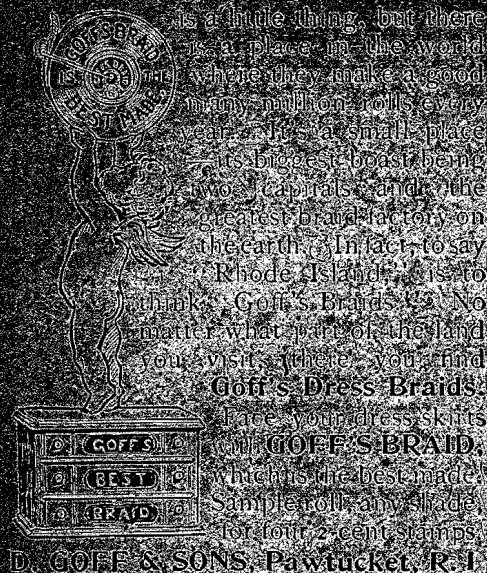 GOFF'S BRAID
IS THE
BEST MADE.
is a little thing, but there
is a place in the world
where they make a good
many million rolls every
year. It's a small place
—its biggest boast being
two capitals and the
greatest braid factory on
the earth. In fact, to say
"Rhode Island" is to
think "Goff's Braids!" No
matter what part of the land
you visit, there you find
Goff's Dress Braids.
Face your dress skirts
with GOFF'S BRAID,
which is the best made.
Sample roll, any shade,
for four 2-cent stamps.
GOFF'S
BEST
BRAID
D. GOFF & SONS, Pawtucket, R. I.